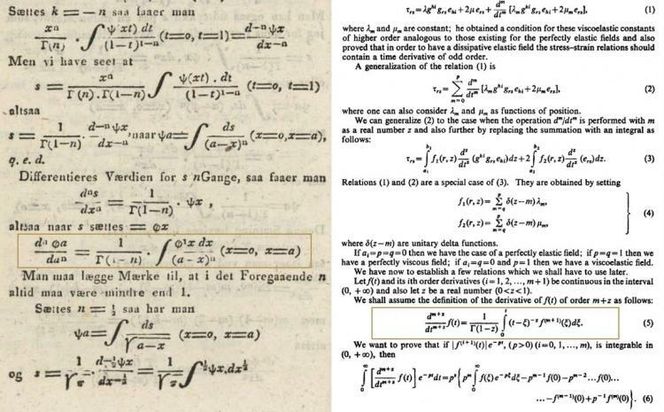 Sættes k = — n saa faaer man
xⁿ/Γ(n) · ∫ ψ(xt) dt/(1—t)¹⁻ⁿ (t=o, t=1) = d⁻ⁿψx/dx⁻ⁿ
Men vi have seet at
s = xⁿ/(Γ(n) . Γ(1-n)) ∫ ψ(xt) . dt/(1—t)¹⁻ⁿ (t=o, t=1)
altsaa
s = 1/Γ(1-n) · d⁻ⁿψx/dx⁻ⁿ naar ψa = ∫ ds/(a—x)ⁿ (x=o, x=a),
q. e. d.
Differentieres Værdien for s n Gange, saa faaer man
dⁿs/dxⁿ = 1/Γ(1—n) · ψx ,
altsaa naar s sættes = φx
dⁿ φa/daⁿ = 1/Γ(1-n) · ∫ φ¹x dx/(a - x)ⁿ (x=o, x=a)
Man maa lægge Mærke til, at i det Foregaaende n
altid maa være mindre end 1.
Sættes n = ½ saa har man
ψa = ∫ ds/√a—x (x=o, x=a)
og s = 1/√π · d⁻½ψx/dx⁻½ = 1/√π ∫½ψx.dx½
τᵣₛ = λgʰⁱ gᵣₛ eₕᵢ + 2μeᵣₛ + dᵐ/dtᵐ [λₘgʰⁱgᵣₛ eₕᵢ + 2μₘeᵣₛ], (1)
where λₘ and μₘ are constant; he obtained a condition for these viscoelastic constants
of higher order analogous to those existing for the perfectly elastic fields and also
proved that in order to have a dissipative elastic field the stress–strain relations should
contain a time derivative of odd order.
A generalization of the relation (1) is
τᵣₛ = Σ dᵐ/dtᵐ [λₘgʰⁱgᵣₛ eₕᵢ + 2μₘeᵣₛ], (2)
where one can also consider λₘ and μₘ as functions of position.
We can generalize (2) to the case when the operation dᵐ/dtᵐ is performed with m
as a real number z and also further by replacing the summation with an integral as
follows:
τᵣₛ = ∫ f₁(r, z) dᶻ/dtᶻ (gʰⁱ gᵣₛ eₕᵢ) dz + 2 ∫ f₂(r, z) dᶻ/dtᶻ (eᵣₛ) dz. (3)
Relations (1) and (2) are a special case of (3). They are obtained by setting
f₁(r, z) = Σ δ(z—m) λₘ,
f₂(r, z) = Σ δ(z—m) μₘ, (4)
where δ(z—m) are unitary delta functions.
If aᵢ=p=q=0 then we have the case of a perfectly elastic field; if p=q=1 then we
have a perfectly viscous field; if aᵢ=q=0 and p=1 then we have a viscoelastic field.
We have now to establish a few relations which we shall have to use later.
Let f(t) and its ith order derivatives (i=1, 2, ..., m+1) be continuous in the interval
(0, +∞) and also let z be a real number (0<z<1).
We shall assume the definition of the derivative of f(t) of order m+z as follows:
dᵐ⁺ᶻ/dtᵐ⁺ᶻ f(t) = 1/Γ(1—z) ∫ (t—ξ)⁻ᶻ f⁽ᵐ⁺¹⁾(ξ) dξ. (5)
We want to prove that if |f⁽ⁱ⁺¹⁾(t)| e⁻ᵖᵗ, (p>0) (i=0, 1, ..., m), is integrable in
(0, +∞), then
∫ [dᵐ⁺ᶻ/dtᵐ⁺ᶻ f(t)] e⁻ᵖᵗ dt = pᶻ {pᵐ ∫ f(ξ) e⁻ᵖξ dξ — pᵐ⁻¹ f(0) — pᵐ⁻² ... f(0)...
... —f⁽ᵐ⁻¹⁾(0) + p⁻¹ f⁽ᵐ⁾(0)}. (6)